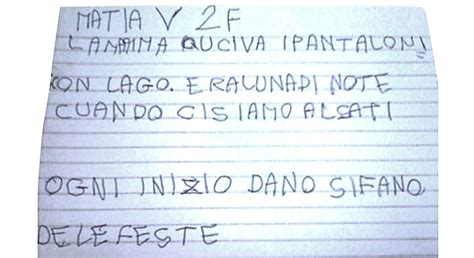 MATIA V 2F
LAMMMA QUCIVA IPANTALONI
KON LAGO. ERALUNADI NOTE
CUANDO CISIAMO ALSATI
OGNI INIZIO DANO SIFANO
DELEFESTE